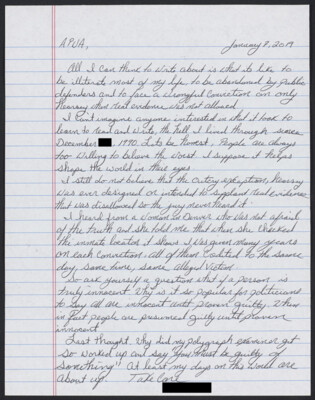 APWA,
January 8, 2019
All I can think to write about is what its like to
be illiterate most of my life, to be abandoned by public
defenders and to face a wrongful conviction on only
Hearsay when real evidence was not allowed.
I can't imagine anyone interested in what I took to
learn to read and write, the Hell I lived through since
December 1990. Lets be honest, People are always
too willing to believe the worst. I suppose it helps
shape the world in their eyes
I still do not believe that the outcry exception, hearsay
was ever designed or intended to supplant real evidence
that was disallowed so the jury never heard it
I heard from a woman in Denver who was not afraid
of the truth and she told me that when she checked
the inmate locator it shows I was given many years
on each conviction, all of them combined to the same
day, same time, same alleged victim
So ask yourself a question what if a person is
truly innocent. Why is it so popular for politicians
to say all are innocent until proven guilty, when
in fact people are presumed guilty until proven
innocent
Last thought. Why did my polygraph examiner get
so worked up and say "you must be guilty of
something" At least my days on this world are
About up. Take Care